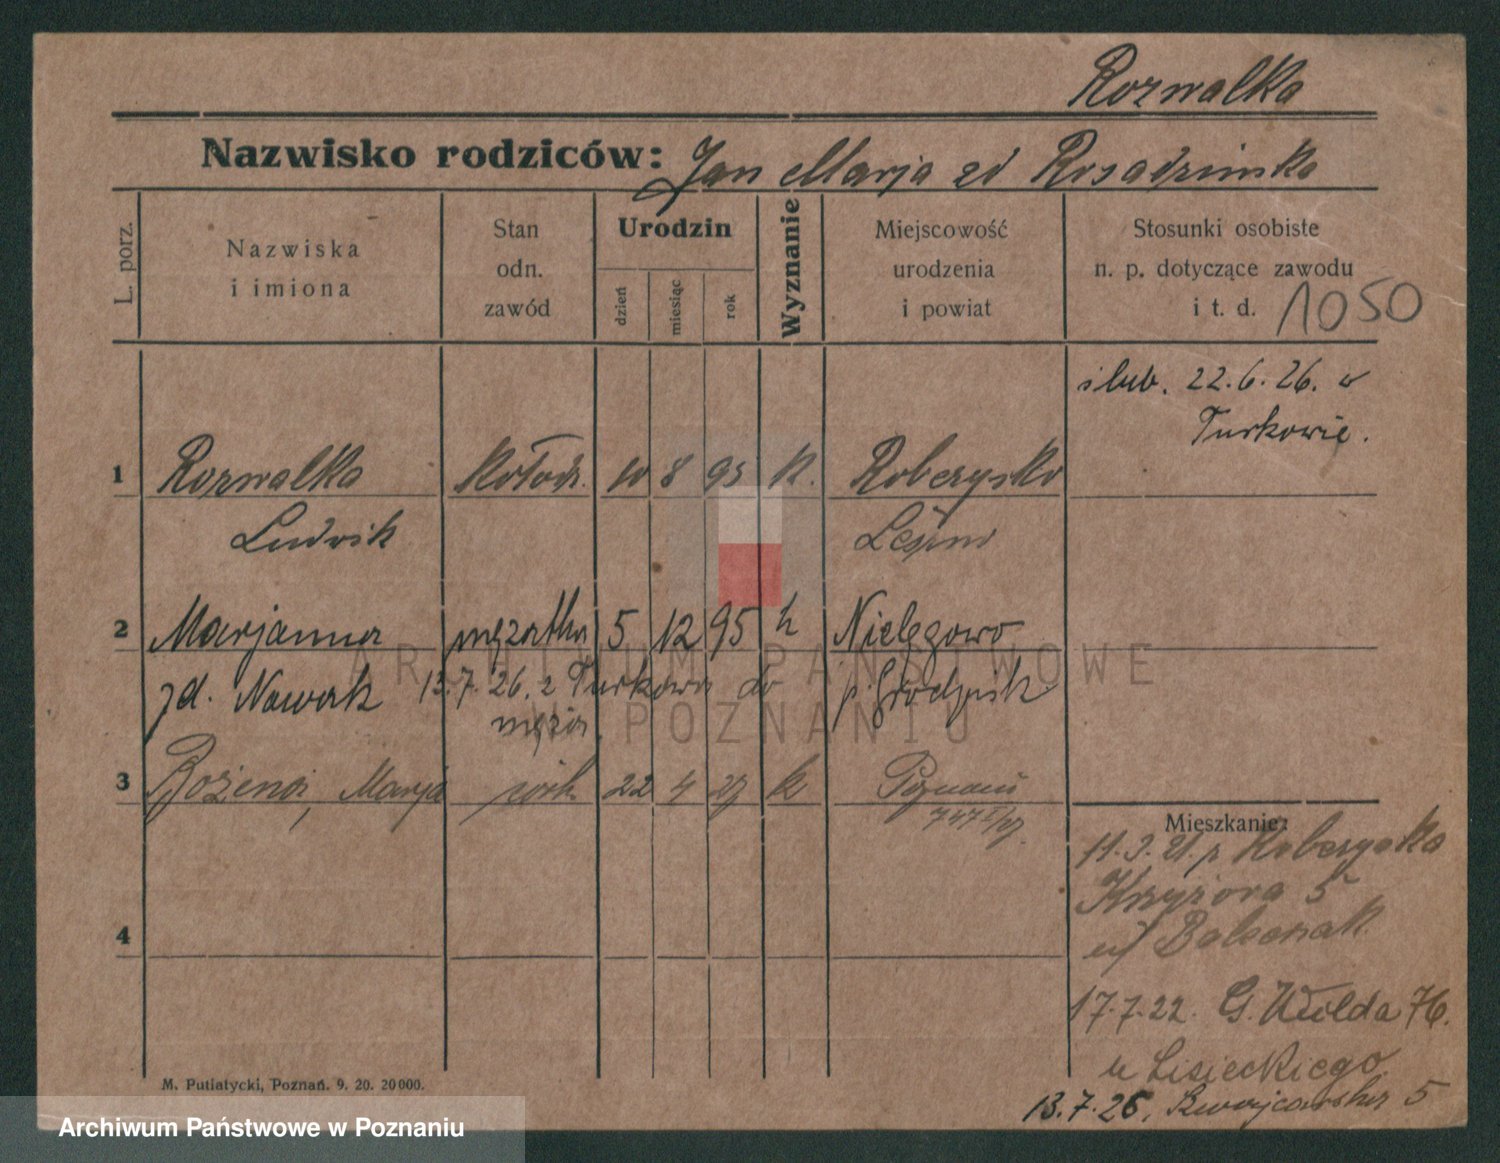 Rozwalka
Nazwisko rodziców: Jan Marja zd Rosadzinska
L. porz.
Nazwiska
i imiona
Stan
odn.
zawód
Urodzin
dzień
miesiąc
rok
Wyznanie
Miejscowość
urodzenia
i powiat
Stosunki osobiste
n. p. dotyczące zawodu
i t. d.
1050
ślub. 22.6.26. w
Turkowie.
1 Rozwalka kołodz. 10 8 95 k. Kobczysko
Ludwik Leszno
2 Marjanna mężatka 5 12 95 k Nielęgowo
zd. Nowak 13.7.26. z Turkowa do p. Grodzisk
męża.
3 Bożena, Marja 22 4 27 k Poznań
Mieszkanie:
11.3.21. p Kobczyska
5
17.7.22. G. Wilda 76.
u Lisieckiego
4
13.7.26, Szwajcarska 5
M. Putiatycki, Poznań. 9. 20. 20000.
ARCHIWUM PAŃSTWOWE
W POZNANIU
Archiwum Państwowe w Poznaniu